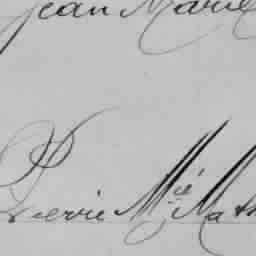 Jean Marie
Pierre Mie Math